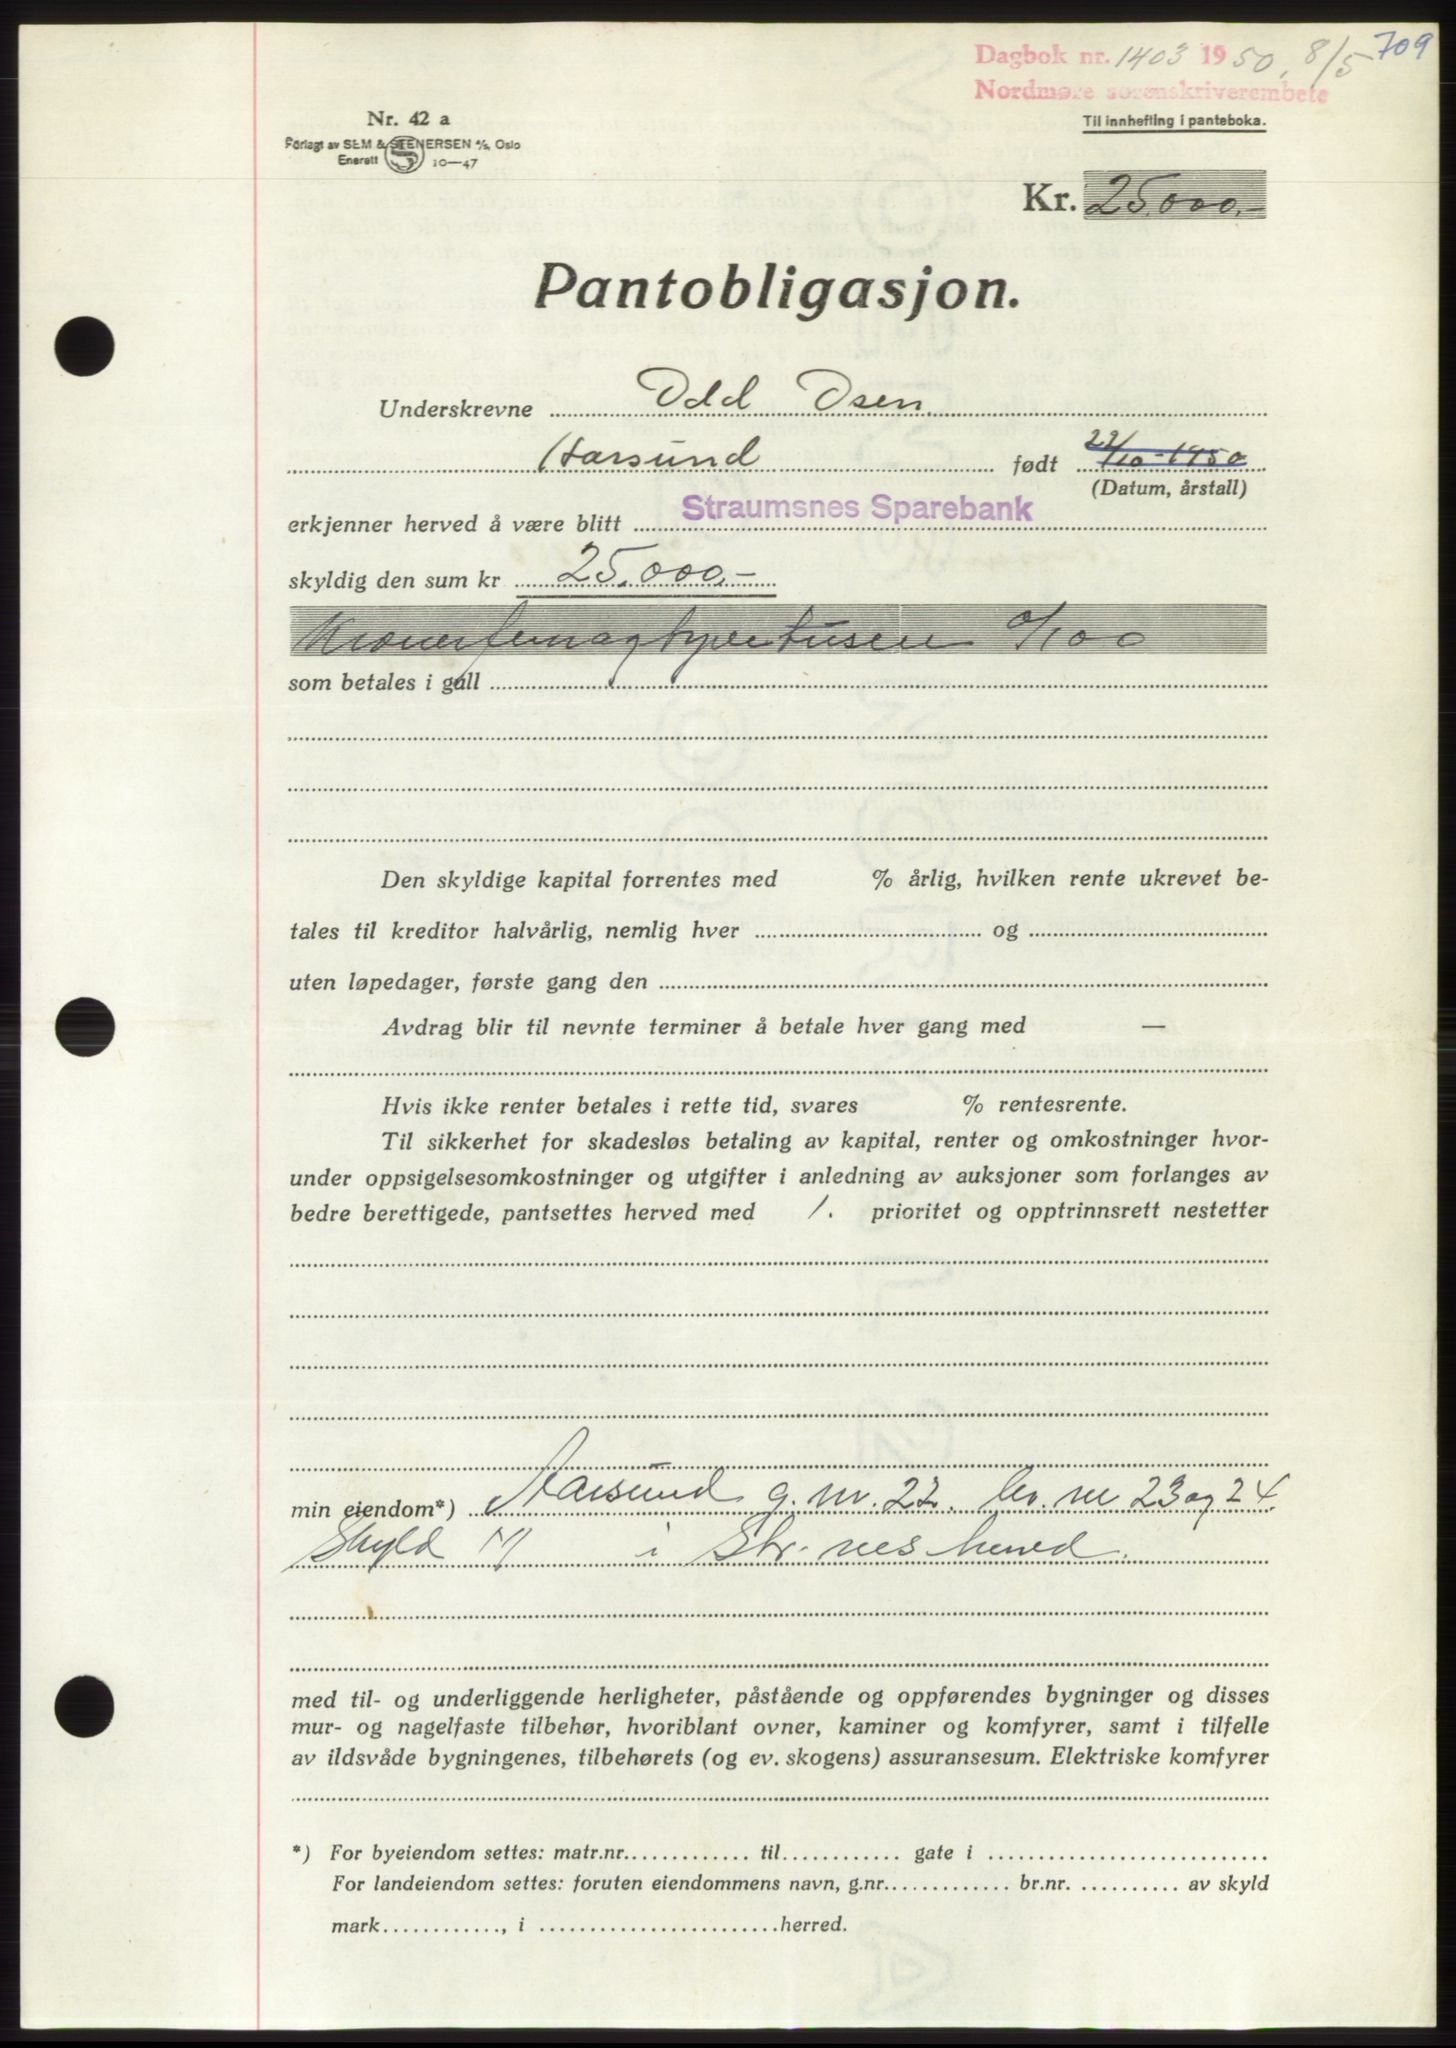 709
Dagbok nr. 1403 1950, 8/5
Nordmøre sorenskriverembete
Til innhefting i panteboka.
Nr. 42 a
Forlagt av SEM & STENERSEN A/S, Oslo
Enerett 10—47
Kr. 25.000.-
Pantobligasjon.
Underskrevne Odd Osen
Aarsund født 22/10-1950
(Datum, årstall)
erkjenner herved å være blitt Straumsnes Sparebank
skyldig den sum kr 25.000.-
Kronerfemogtyvetusen 0/100
som betales i gull
Den skyldige kapital forrentes med % årlig, hvilken rente ukrevet be-
tales til kreditor halvårlig, nemlig hver og
uten løpedager, første gang den
Avdrag blir til nevnte terminer å betale hver gang med —
Hvis ikke renter betales i rette tid, svares % rentesrente.
Til sikkerhet for skadesløs betaling av kapital, renter og omkostninger hvor-
under oppsigelsesomkostninger og utgifter i anledning av auksjoner som forlanges av
bedre berettigede, pantsettes herved med 1. prioritet og opptrinnsrett nestetter
min eiendom*) Aarsund g. nr. 22. br. nr 23 og 24.
Skyld i Str.nes herred.
med til- og underliggende herligheter, påstående og oppførendes bygninger og disses
mur- og nagelfaste tilbehør, hvoriblant ovner, kaminer og komfyrer, samt i tilfelle
av ildsvåde bygningenes, tilbehørets (og ev. skogens) assuransesum. Elektriske komfyrer
*) For byeiendom settes: matr.nr. til gate i
For landeiendom settes: foruten eiendommens navn, g.nr. br.nr. av skyld
mark , i herred.